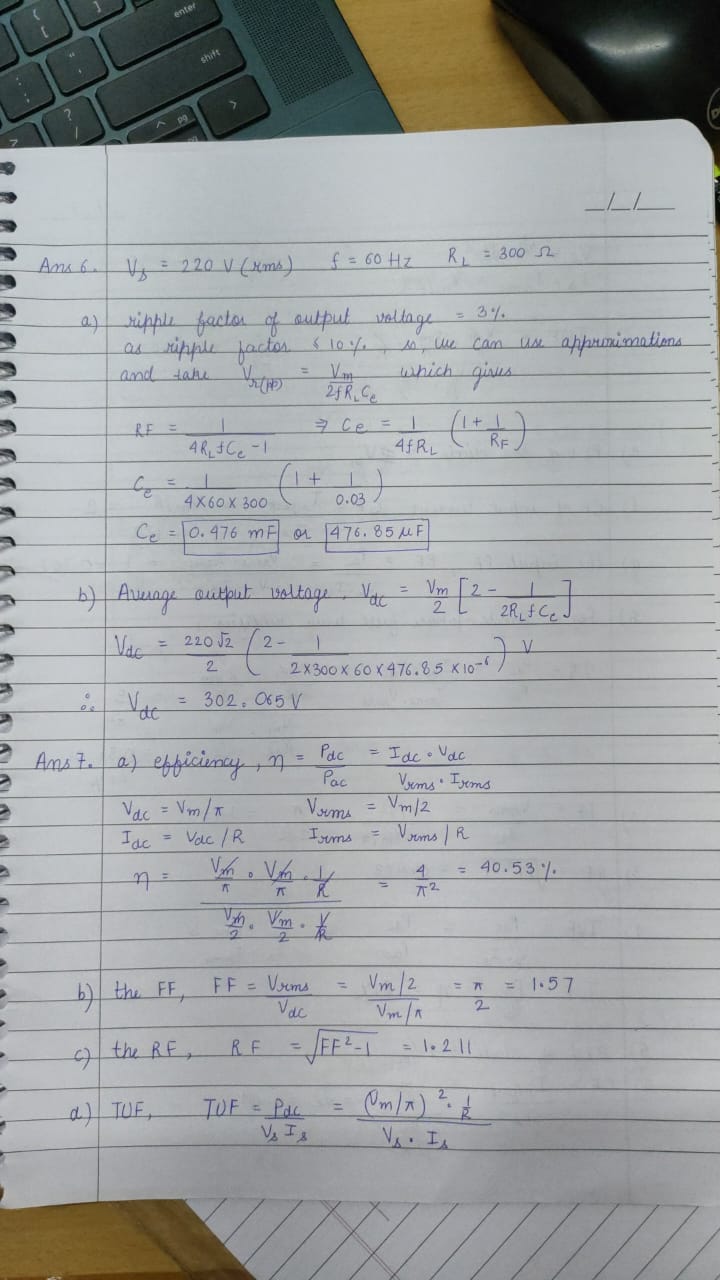 enter
shift
pg
Ans 6. Vs = 220 V (rms) f = 60 Hz RL = 300 Ω
a) ripple factor of output voltage = 3%.
as ripple factor ≤ 10%, so, we can use approximations
and take Vr(pp) = Vm / 2fRLCe which gives
RF = 1 / (4RLfCe - 1) ⇒ Ce = 1 / 4fRL (1 + 1/RF)
Ce = 1 / (4×60×300) (1 + 1/0.03)
Ce = 0.476 mF or 476.85 μF
b) Average output voltage, Vdc = Vm/2 [2 - 1/(2RLfCe)]
Vdc = 220√2/2 (2 - 1/(2×300×60×476.85×10^-6)) V
∴ Vdc = 302.065 V
Ans 7. a) efficiency, η = Pdc/Pac = Idc · Vdc / Vrms · Irms
Vdc = Vm/π Vrms = Vm/2
Idc = Vdc/R Irms = Vrms/R
η = (Vm/π · Vm/π · 1/R) / (Vm/2 · Vm/2 · 1/R) = 4/π² = 40.53%.
b) the FF, FF = Vrms/Vdc = (Vm/2)/(Vm/π) = π/2 = 1.57
c) the RF, RF = √(FF²-1) = 1.211
d) TUF, TUF = Pdc/(Vs Is) = ((Vm/π)² · 1/R) / (Vs · Is)